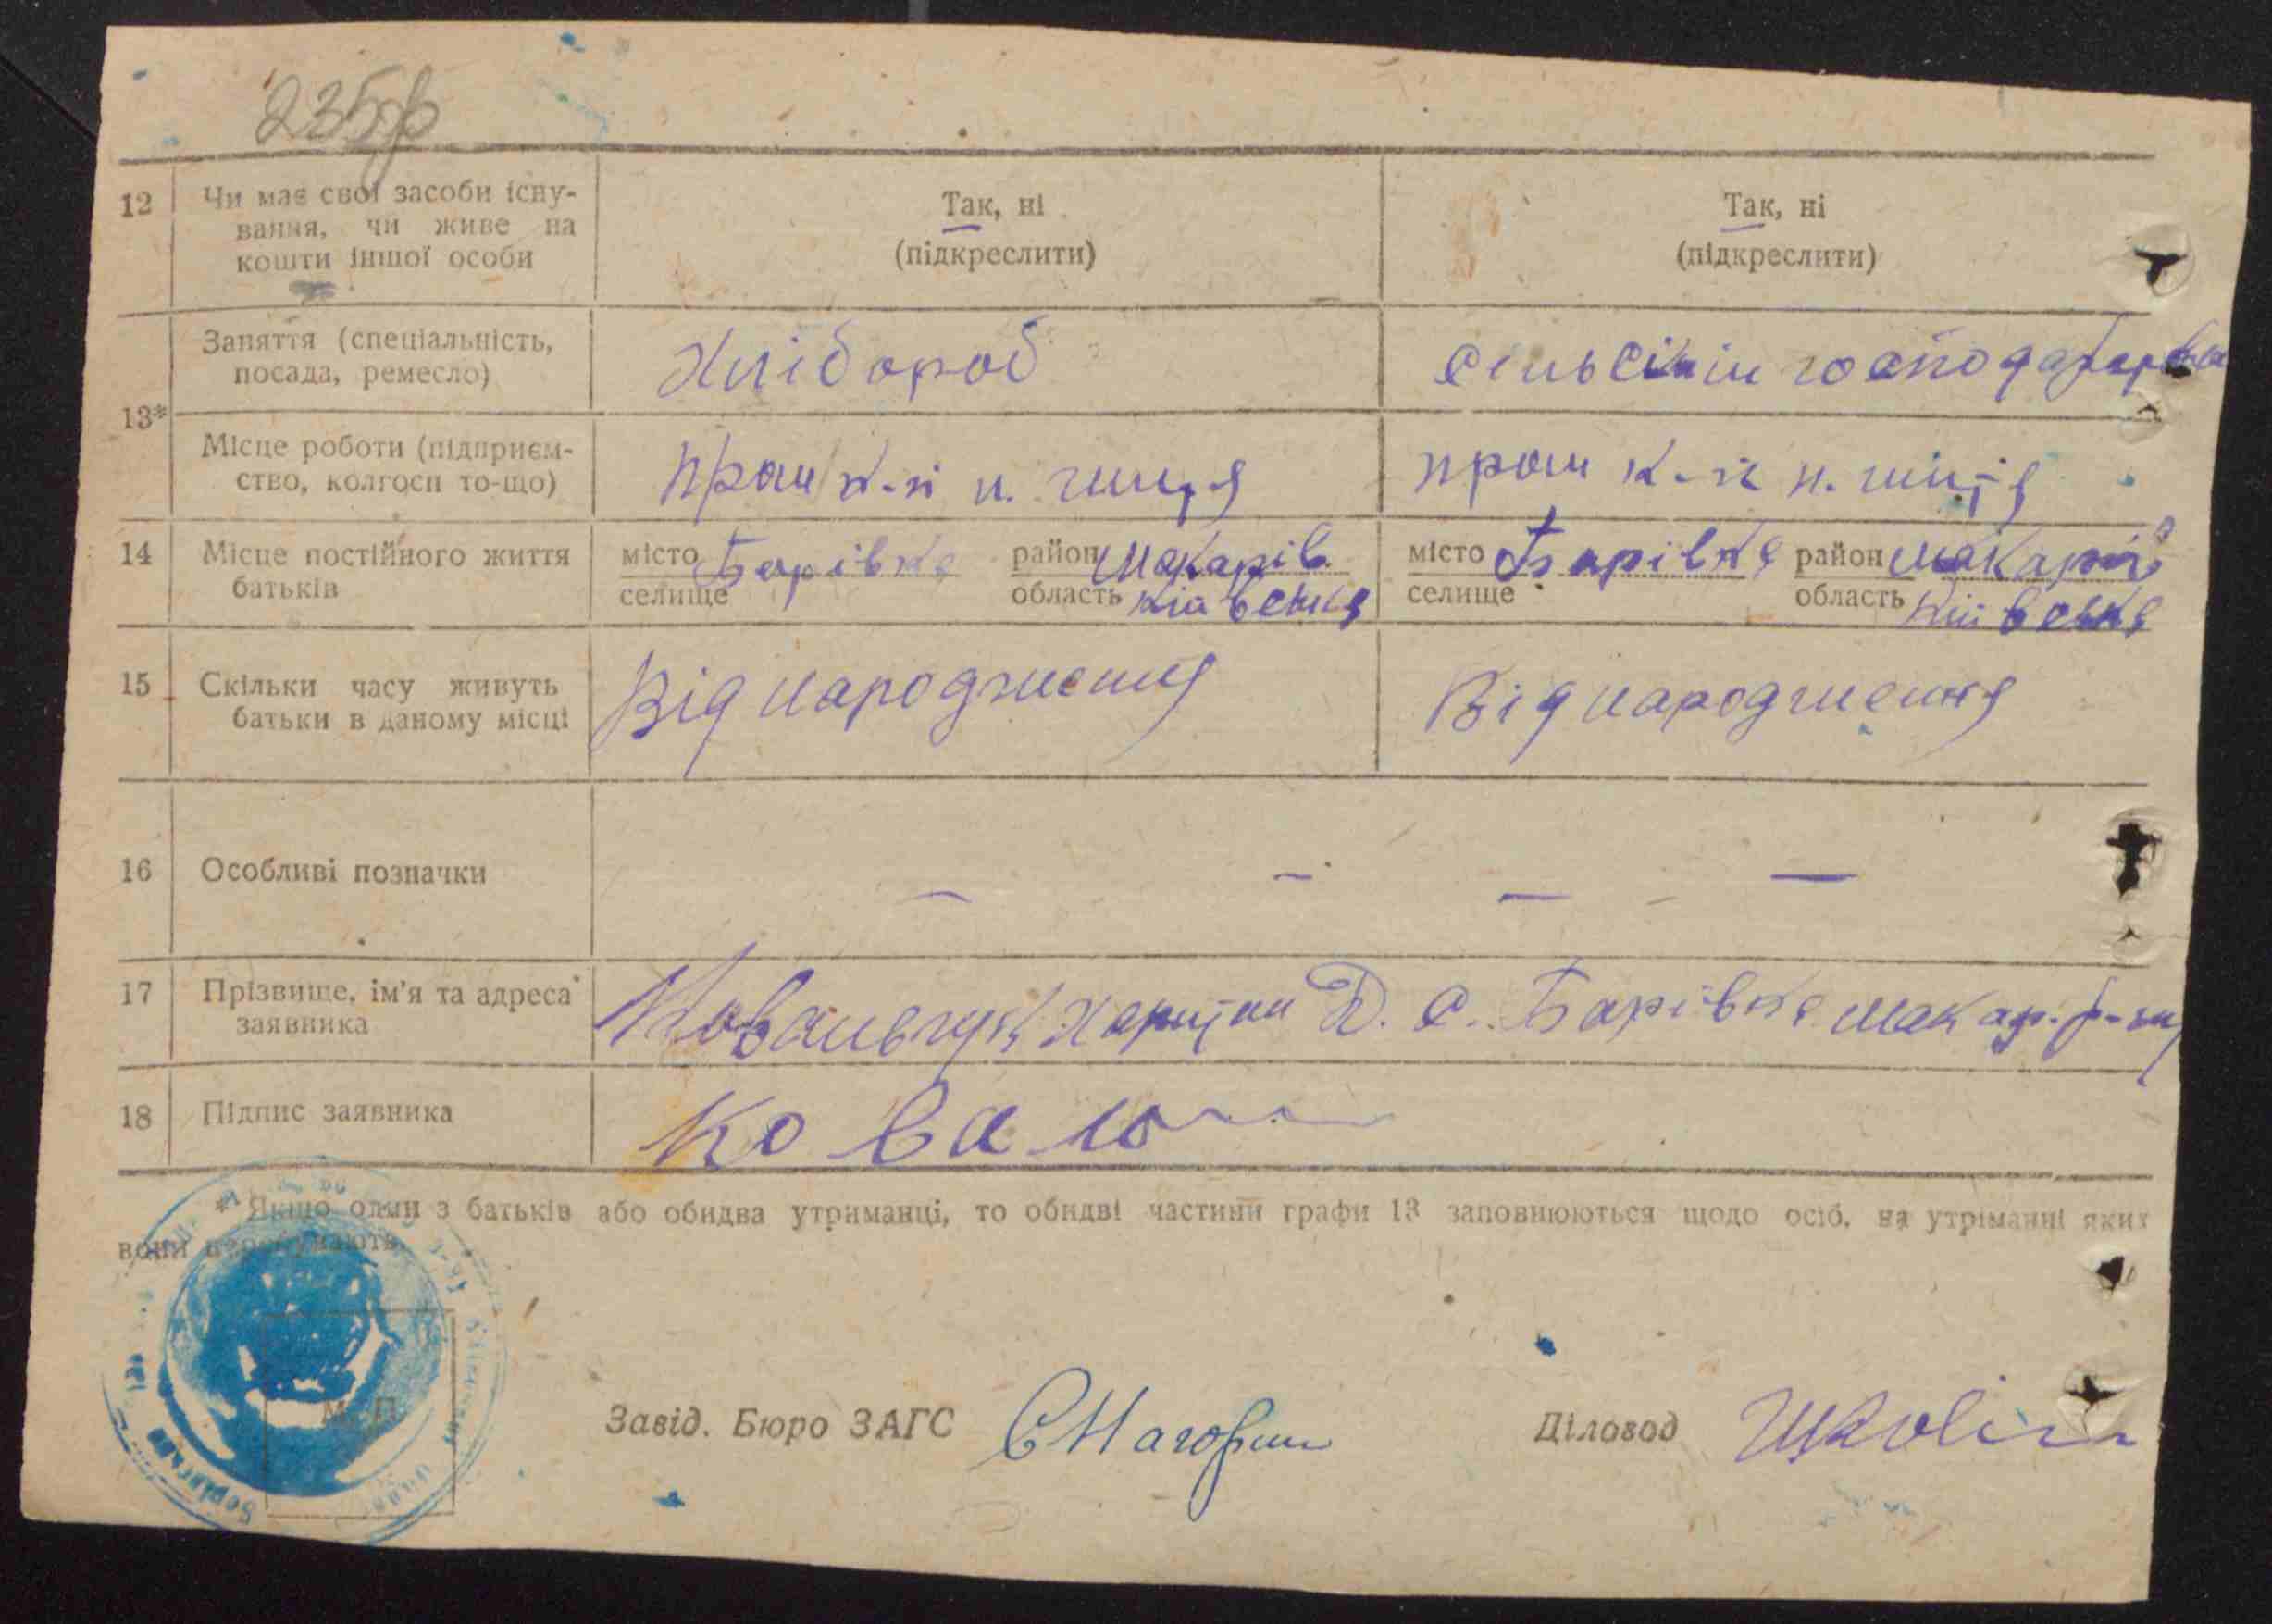 12 Чи має свої засоби існу-
вання, чи живе на
кошти іншої особи
Так, ні
(підкреслити)
Так, ні
(підкреслити)
13*
Заняття (спеціальність,
посада, ремесло)
Хлібороб
Місце роботи (підприєм-
ство, колгосп то-що)
14 Місце постійного життя
батьків
місто Барівка район Макарів.
селище область Київська
місто Барівка район Макарів
селище область Київська
15 Скільки часу живуть
батьки в даному місці
Від народження
Від народження
16 Особливі позначки
— — — —
17 Прізвище, ім'я та адреса
заявника
Ковальчук Харитон Д. с. Барівка Макар. р-ну
18 Підпис заявника
Коваль
* Якщо один з батьків або обидва утриманці, то обидві частини графи 13 заповнюються щодо осіб, на утріманні яких
вони перебувають.
М. П.
Завід. Бюро ЗАГС
Діловод